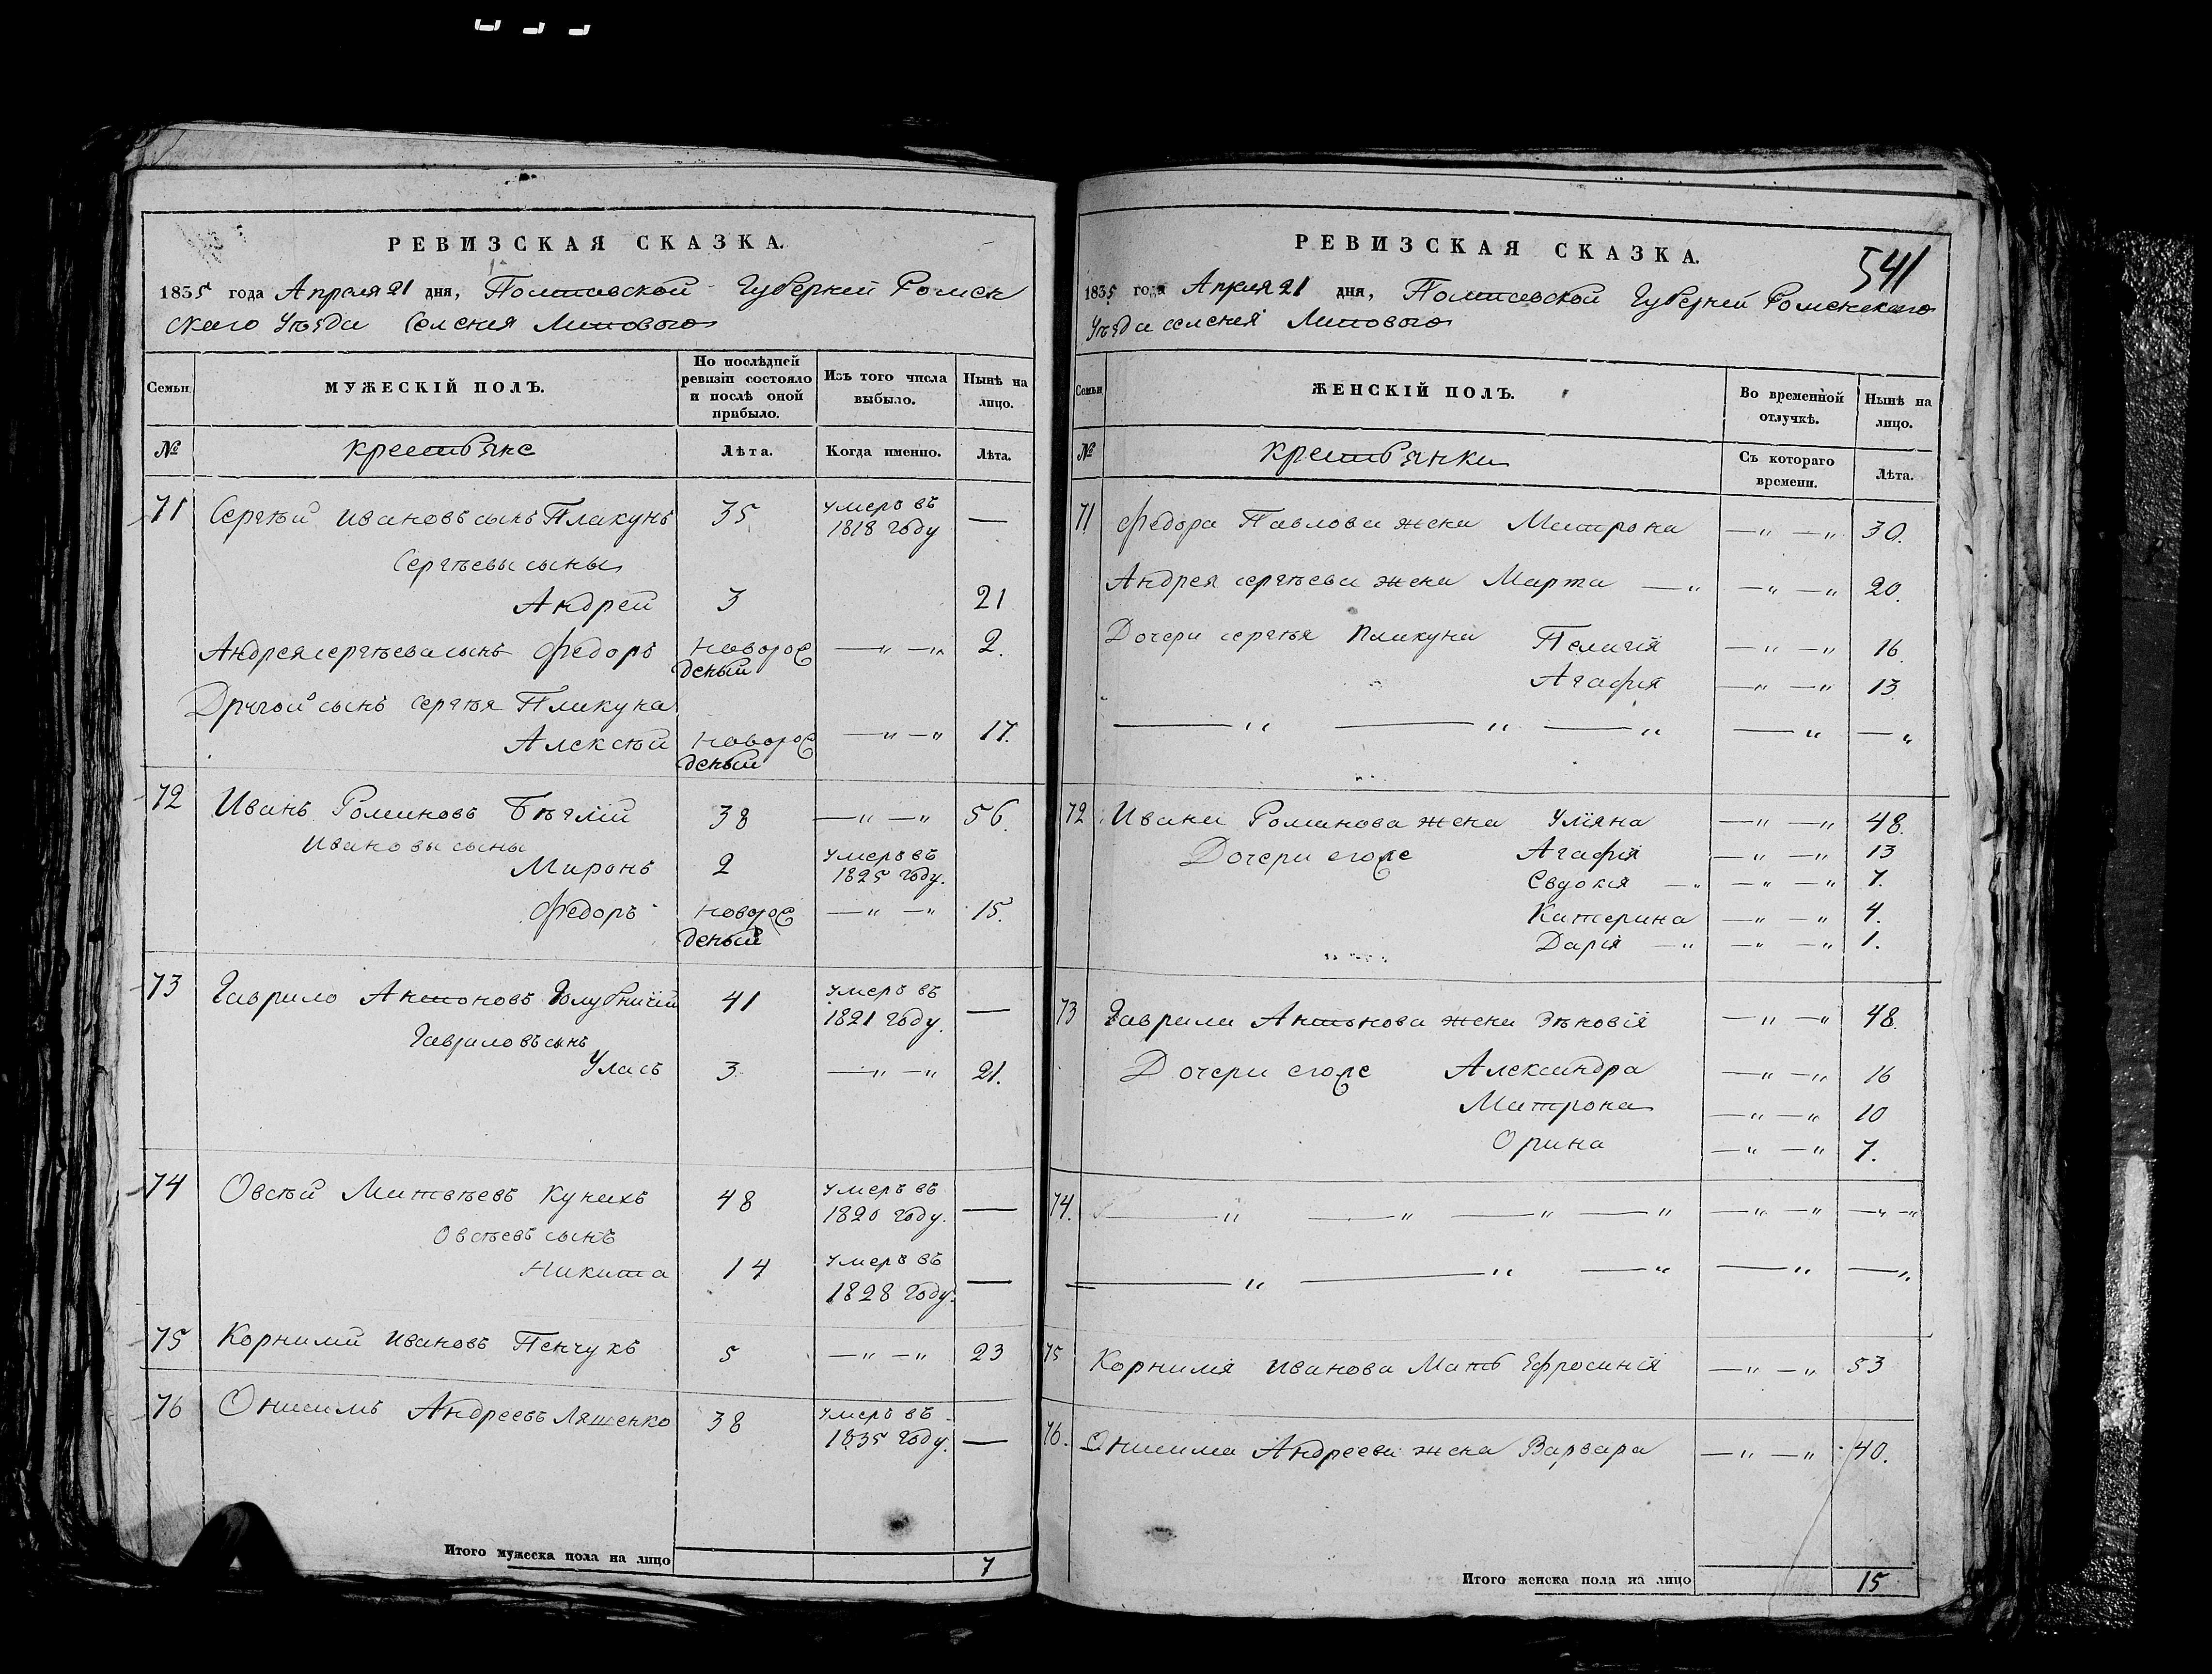 РЕВИЗСКАЯ СКАЗКА.
1835 года Апреля 21 дня, Полтавской Губерней Ромен
скаго Уѣзда Селения Липового
Семьи. МУЖЕСКІЙ ПОЛЪ. По послѣдней ревизіи состояло и послѣ оной прибыло. Изъ того числа выбыло. Нынѣ на лицо.
№ крестьяне Лѣта. Когда именно. Лѣта.
71 Сергѣй Ивановъ сынъ Плакунъ 35 умеръ въ 1818 году —
Сергѣевы сыны
Андрей 3 21
Андрея сергѣева сынъ Федоръ новорож
деный —„ —„ 2.
Другой сынъ сергѣя Плакуна
Алексѣй новорож
деный —„ —„ 17.
72 Иванъ Романовъ Бѣглій 38 —„ —„ 56.
Ивановы сыны
Миронъ 2 умеръ въ 1825 году.
Федоръ новорож
деный —„ —„ 15.
73 Гаврило Антоновъ Голубничій 41 умеръ въ 1821 году. —
Гавриловъ сынъ
Уласъ 3 —„ —„ 21.
74 Овсѣй Матвѣевъ Кунахъ 48 умеръ въ 1820 году. —
Овсѣевъ сынъ
Никита 14 умеръ въ 1828 году. —
75 Корнилий Ивановъ Пенчукъ 5 —„ —„ 23
76 Онисимъ Андреевъ Ляшенко 38 умеръ въ 1835 году. —
Итого мужеска пола на лицо 7
541
РЕВИЗСКАЯ СКАЗКА.
1835 года Апреля 21 дня, Полтавской Губерней Роменскаго
Уѣзда селения Липового
Семьи ЖЕНСКІЙ ПОЛЪ. Во временной отлучкѣ. Нынѣ на лицо.
№ крестьянки Съ котораго времени. Лѣта.
71 Федора Павлова жена Матрона —„ —„ 30.
Андрея сергѣева жена Марта —„ —„ —„ 20.
Дочери сергѣя Плакуна Пелагія —„ —„ 16.
Агафія —„ —„ 13
—„ —„ —„ —„ —„
72 Ивана Романова жена Уліяна —„ —„ 48.
Дочери егоже Агафія —„ —„ 13
Евдокія —„ —„ —„ 7.
Катерина —„ —„ 4.
Дарія —„ —„ —„ 1.
73 Гаврила Антонова жена Зѣновія —„ —„ 48.
Дочери егоже Александра —„ —„ 16
Матрона —„ —„ 10
Орина —„ —„ 7.
74. —„ —„ —„ —„ —„ —„ —„ —„
—„ —„ —„ —„ —„
75 Корнилія Иванова Мать Ефросинія —„ —„ 53
76. Онисима Андреева жена Варвара —„ —„ 40.
Итого женска пола на лицо 15